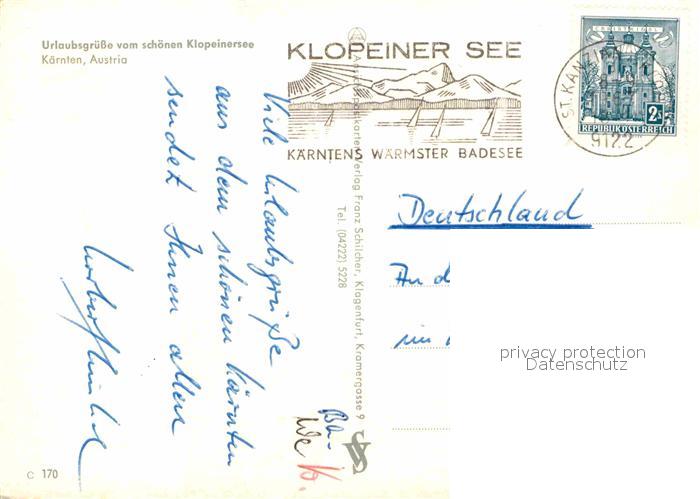 Urlaubsgrüße vom schönen Klopeinersee
Kärnten, Austria
KLOPEINER SEE
KÄRNTENS WÄRMSTER BADESEE
ST. KANZI
9122
CHRISTKINDL
2S
REPUBLIK ÖSTERREICH
Viele Urlaubsgrüße
aus dem schönen Kärnten
sendet Ihnen allen
Ansichtspostkarten-Verlag Franz Schilcher, Klagenfurt, Kramergasse 9
Tel. (04222) 5228
Deutschland
An d
privacy protection
Datenschutz
C 170